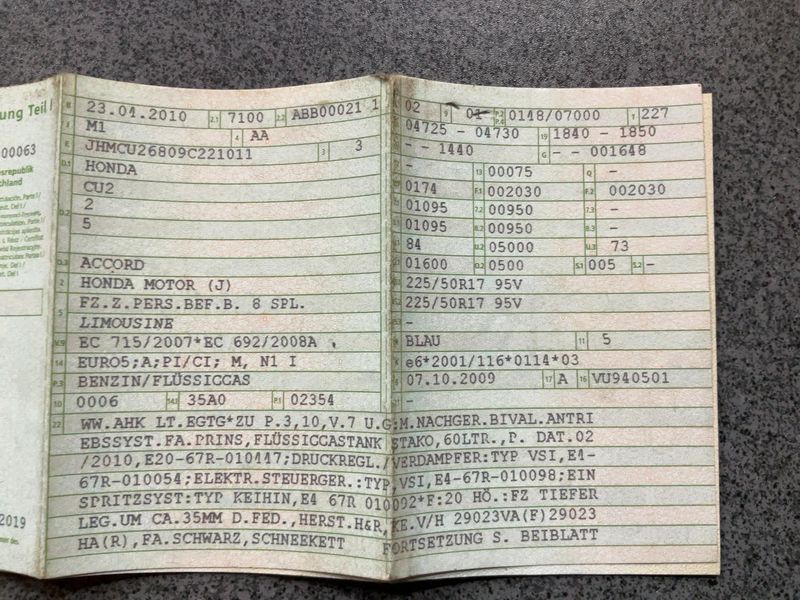 ung Teil I
00063
esrepublik
chland
2019
B 23.04.2010 2.1 7100 2.2 ABB00021 1
J M1 4 AA
E JHMCU26809C221011 3 3
D.1 HONDA
CU2
D.2 2
5
D.3 ACCORD
2 HONDA MOTOR (J)
5 FZ.Z.PERS.BEF.B. 8 SPL.
LIMOUSINE
V.9 EC 715/2007*EC 692/2008A
14 EURO5;A;PI/CI; M, N1 I
P.3 BENZIN/FLÜSSIGGAS
10 0006 14.1 35A0 P.1 02354
02 9 01 P.2 P.4 0148/07000 T 227
04725 - 04730 19 1840 - 1850
- - 1440 G - - 001648
- 13 00075 Q -
0174 F.1 002030 F.2 002030
01095 7.2 00950 7.3 -
01095 8.2 00950 8.3 -
84 U.2 05000 U.3 73
01600 0500 S.1 005 S.2 -
225/50R17 95V
225/50R17 95V
-
BLAU 11 5
e6*2001/116*0114*03
07.10.2009 17 A 16 VU940501
22 WW.AHK LT.EGTG*ZU P.3,10,V.7 U.G:M.NACHGER.BIVAL.ANTRI
EBSSYST.FA.PRINS,FLÜSSIGGASTANK STAKO,60LTR.,P. DAT.02
/2010,E20-67R-010447;DRUCKREGL./VERDAMPFER:TYP VSI,E4-
67R-010054;ELEKTR.STEUERGER.:TYP VSI,E4-67R-010098;EIN
SPRITZSYST:TYP KEIHIN,E4 67R 010092*F:20 HÖ.:FZ TIEFER
LEG.UM CA.35MM D.FED.,HERST.H&R,KE.V/H 29023VA(F)29023
HA(R),FA.SCHWARZ,SCHNEEKETT FORTSETZUNG S. BEIBLATT